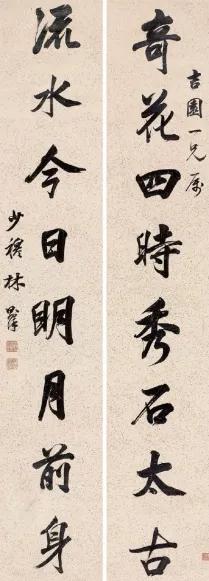 吉園一兄屬
奇花四時秀石太古
流水今日明月前身
少穆林則徐